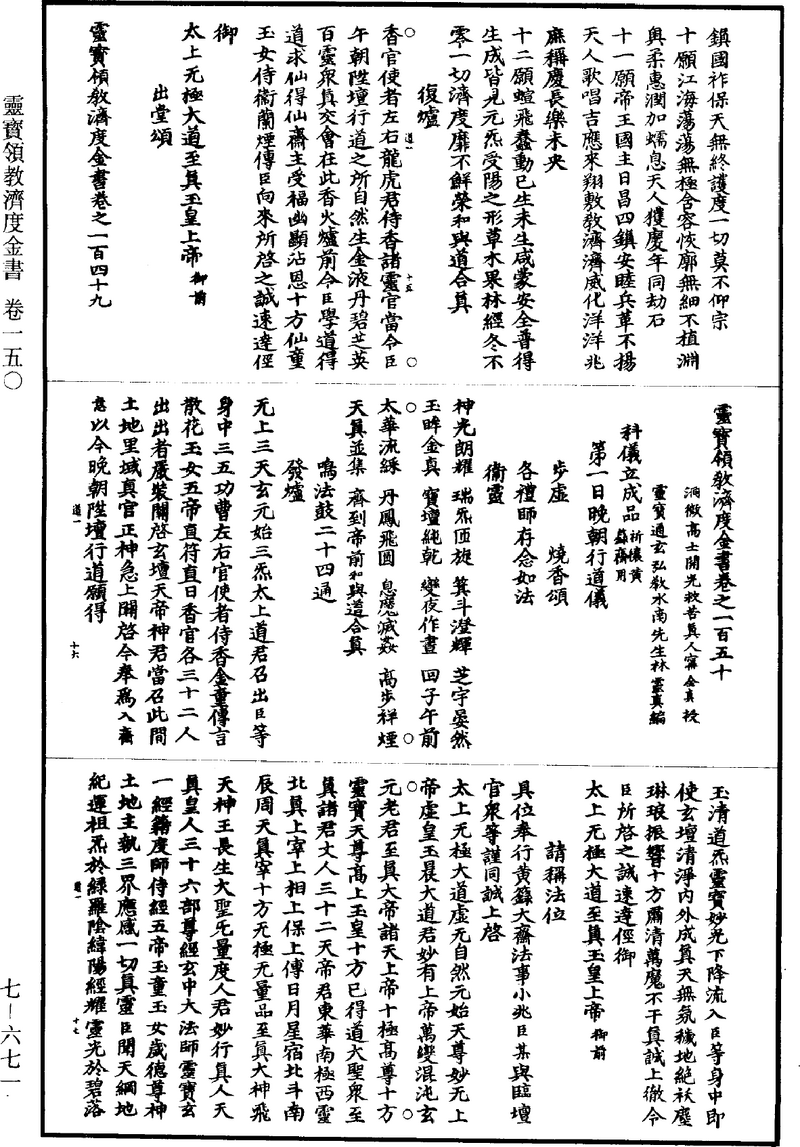 靈寶領教濟度金書 卷一五〇
七–六七一
鎮國祚保天無終護度一切莫不仰宗
十願江海蕩蕩無極含容恢廓無細不植淵
輿柔惠潤加蠕息天人獲慶年同劫石
十一願帝王國主日昌四鎮安睦兵革不揚
天人歌唱吉應來翔敷教濟濟威化洋洋兆
庶稱慶長樂未央
十二願蝖飛蠢動已生未生咸蒙安全普得
生成皆見元炁受陽之形草木果林經冬不
零一切濟度靡不鮮榮和與道合真
復爐
香官使者左右龍虎君侍香諸靈官當令臣
午朝陞壇行道之所自然生金液丹碧芝英
百靈衆真交會在此香火爐前令臣學道得
道求仙得仙齋主受福幽顯沾恩十方仙童
玉女侍衛蘭煙傳臣向來所啓之誠速達徑
御
太上无極大道至真玉皇上帝御前
出堂頌
靈寶領教濟度金書卷之一百四十九
道一
十五
靈寶領教濟度金書卷之一百五十
洞微高士開光救苦真人甯全真授
靈寶通玄弘教水南先生林靈真編
科儀立成品祈禳黃籙齋用
第一日晚朝行道儀
步虛 燒香頌
各禮師存念如法
衛靈
神光朗耀 瑞炁匝旋 箕斗澄輝 芝宇晏然
玉眸金真 寶壇純乾 變夜作晝 回子午前
太華流綵 丹鳳飛圓 息魔滅姦 高步祥煙
天真並集 齊到帝前和與道合真
鳴法鼓二十四通
發爐
无上三天玄元始三炁太上道君召出臣等
身中三五功曹左右官使者侍香金童傳言
散花玉女五帝直符直日香官各三十二人
出出者嚴裝關啓玄壇天帝神君當召此間
土地里域真官正神急上關啓今奉爲入齋
意以今晚朝陞壇行道願得
道一
十六
玉清道炁靈寶妙光下降流入臣等身中即
使玄壇清淨內外成真天無氛穢地絕祅塵
琳琅振響十方肅清萬魔不干真誠上徹令
臣所啓之誠速達徑御
太上无極大道至真玉皇上帝御前
請稱法位
具位奉行黃籙大齋法事小兆臣某與臨壇
官衆等謹同誠上啓
太上无極大道虛无自然元始天尊妙无上
帝虛皇玉晨大道君妙有上帝萬變混沌玄
元老君至真大帝諸天上帝十極高尊十方
靈寶天尊高上玉皇十方已得道大聖衆至
真諸君丈人三十二天帝君東華南極西靈
北真上宰上相上保上傅日月星宿北斗南
辰周天真宰十方无極无量品至真大神飛
天神王長生大聖无量度人君妙行真人天
真皇人三十六部尊經玄中大法師靈寶玄
一經籍度師侍經五帝玉童玉女歲德尊神
土地主執三界應感一切真靈臣聞天綱地
紀運祖炁於綠羅陰緯陽經耀靈光於碧落
道一
十七